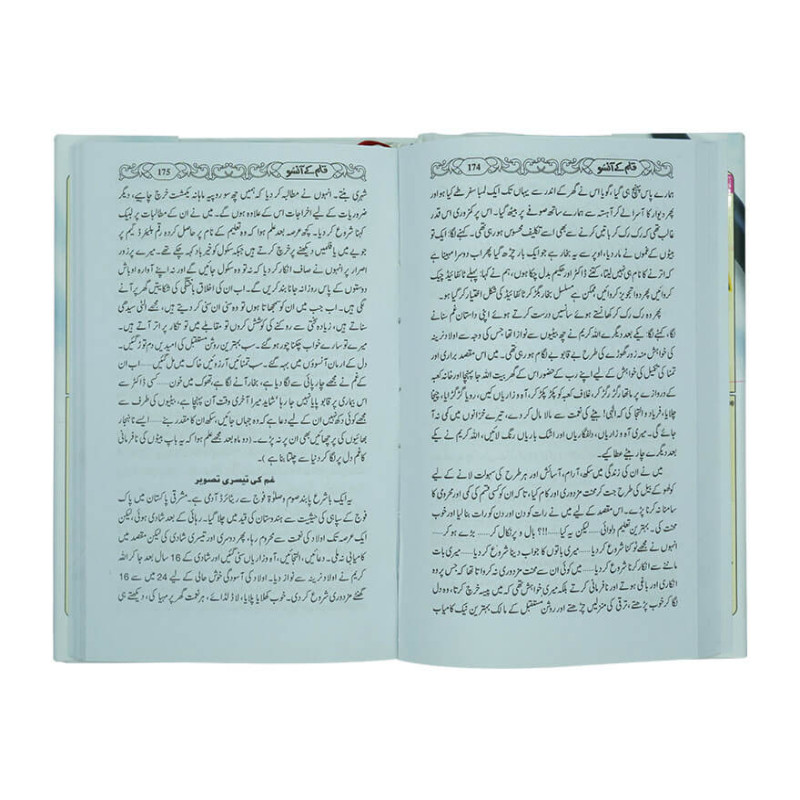 174 قلم کے آنسو
ہمارے پاس پہنچ ہی گیا، گویا اس نے گھر کے اندر سے یہاں تک ایک لمبا سفر طے کیا ہو اور
پھر دیوار کا آسرا لے کر آہستہ سے ہمارے ساتھ صوفے پر بیٹھ گیا۔ اس پر کمزوری اس قدر
غالب تھی کہ رک رک کر باتیں کرنے سے بھی اسے تکلیف محسوس ہو رہی تھی۔ کہنے لگا: ایک تو
بیٹوں کے غموں نے مار دیا، اوپر سے یہ بخار ہے جو ایک بار چڑھ گیا پھر اب دوسرا مہینا ہے
کہ اترنے کا نام ہی نہیں لیتا، کتنے ڈاکٹر اور حکیم بدل چکا ہوں، ہم نے کہا: پہلے ٹائفائیڈ چیک
کروائیں پھر دوا تجویز کروائیں ممکن ہے مسلسل بخار بگڑ کر ٹائیفائیڈ کی شکل اختیار کر گیا ہو۔
پھر وہ رک رک کر کھانستے ہوئے سانسیں درست کرتے ہوئے اپنی داستان غم سنانے
لگا، کہنے لگا: یکے بعد دیگرے اللہ کریم نے چھ بیٹیوں سے نوازا تھا جس کی وجہ سے اولاد نرینہ
کی خواہش منہ زور گھوڑے کی طرح بے قابو بے لگام ہو رہی تھی۔ میں اس مقصد براری اور
تمنا کی تکمیل کی خواہش کے لیے اپنے رب کے حضور اس کے گھر بیت اللہ جا پہنچا اور خانہ کعبہ
کے دروازے پر ماتھا رگڑ رگڑ کر، غلاف کعبہ کو پکڑ پکڑ کر، آہ و زاریاں کیں، رویا گڑگڑایا،
چلایا، فریاد و التجا کی کہ الٰہی! بیٹے کی نعمت سے مالا مال کر دے، تیرے خزانوں میں کمی نہ آ
جائے گی۔ میری آہ و زاریاں، دلفگاریاں اور اشک باریاں رنگ لائیں، اللہ کریم نے یکے
بعد دیگرے چار بیٹے عطا کیے۔
میں نے ان کی زندگی میں سکھ، آرام، آسائش اور ہر طرح کی سہولت لانے کے لیے
کولھو کے بیل کی طرح جت کر محنت مزدوری اور کام کیا، تا کہ ان کو کسی قسم کی کمی اور محرومی کا
سامنا نہ کرنا پڑے۔ اس مقصد کے لیے میں نے رات کو دن اور دن کو رات بنا لیا اور خوب
محنت کی۔ بہترین تعلیم دلوائی ..... لیکن یہ کیا ....!!!؟ بال و پر نکال کر ..... بڑے ہو کر .....
انہوں نے مجھے ٹوکنا شروع کر دیا ..... میری باتوں کا جواب دینا شروع کر دیا ..... میری بات
ماننے سے انکار کرنا شروع کر دیا ..... میں کوئی ان سے محنت مزدوری نہ کرواتا تھا کہ جس پر وہ
انکاری اور باغی ہوتے اور نافرمانی کرتے بلکہ میری خواہش تھی کہ میں پیسہ خرچ کرتا، وہ دل
لگا کر خوب پڑھتے، ترقی کی منزلیں چڑھتے اور روشن مستقبل کے مالک بہترین نیک کامیاب
175 قلم کے آنسو
شہری بنتے۔ انہوں نے مطالبہ کر دیا کہ ہمیں چھ سو روپیہ ماہانہ یکمشت خرچ چاہیے، دیگر
ضروریات کے لیے اخراجات اس کے علاوہ ہوں گے۔ میں نے ان کے مطالبات پر لبیک
کہنا شروع کر دیا۔ کچھ عرصہ بعد علم ہوا کہ وہ تعلیم کے نام پر حاصل کردہ رقم بلیئرڈ گیم پر
جوئے میں یا فلمیں دیکھنے پر خرچ کرتے ہیں جبکہ سکول کو خیر باد کہہ چکے تھے۔ میرے پر زور
اصرار پر انہوں نے صاف انکار کر دیا کہ نہ تو وہ سکول جائیں گے اور نہ اپنے آوارہ اوباش
دوستوں کے پاس روزانہ جانا بند کریں گے۔ اب ان کی اخلاق باختگی کی شکایتیں گھر پر آنے
لگی ہیں۔ اب جب میں ان کو سمجھاتا ہوں تو وہ سنی ان سنی کر دیتے ہیں، مجھے الٹی سیدھی
سناتے ہیں، زیادہ سختی سے روکنے کی کوشش کروں تو مقابلے میں تو تکار پر اتر آتے ہیں۔
میرے تو سارے خواب چکنا چور ہو گئے۔ سب بہترین، روشن مستقبل کی امیدیں دم توڑ گئیں۔
دل کے ارمان آنسوؤں میں بہہ گئے۔ سب تمنائیں آرزوئیں خاک میں مل گئیں ..... اب ان
کے غم نے مجھے چارپائی سے لگا دیا ہے، بخار آنے لگا ہے، تھوک میں خون ..... کسی ڈاکٹر سے
اس بیماری پر قابو پایا نہیں جا رہا، شاید میرا آخری وقت آن پہنچا ہے، بیٹیوں کی طرف سے
مجھے کوئی دکھ نہیں ان کے لیے دعا ہے کہ وہ جہاں جائیں، سکھ ان کا مقدر بنے ..... ایسے ناہنجار
بھائیوں کی پرچھائیں بھی ان پر نہ پڑے۔ (دو ماہ بعد مجھے علم ہوا کہ یہ باپ بیٹوں کی نافرمانی
کا غم دل پر لگا کر دنیا سے چلتا بنا ہے)۔
غم کی تیسری تصویر
یہ ایک باشرع پابند صوم و صلوٰۃ فوج سے ریٹائرڈ آدمی ہے۔ مشرقی پاکستان میں پاک
فوج کے سپاہی کی حیثیت سے ہندوستان کی قید میں چلا گیا۔ رہائی کے بعد شادی ہوئی، لیکن
ایک عرصہ تک اولاد کی نعمت سے محروم رہا، پھر دوسری اور تیسری شادی کی لیکن مقصد میں
کامیابی نہ ملی۔ دعائیں، التجائیں، آہ و زاریاں سنی گئیں اور شادی کے 16 سال بعد جا کر اللہ
کریم نے اولاد نرینہ سے نواز دیا۔ اولاد کی آسودگی خوش حالی کے لیے 24 میں سے 16
گھنٹے مزدوری شروع کر دی۔ خوب کھلایا پلایا، لاڈ لڈائے، ہر نعمت گھر پر مہیا کی، دیکھتے ہی